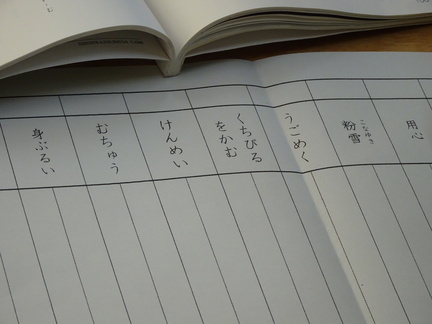 用心
粉雪
こなゆき
うごめく
くちびる
をかむ
けんめい
むちゅう
身ぶるい